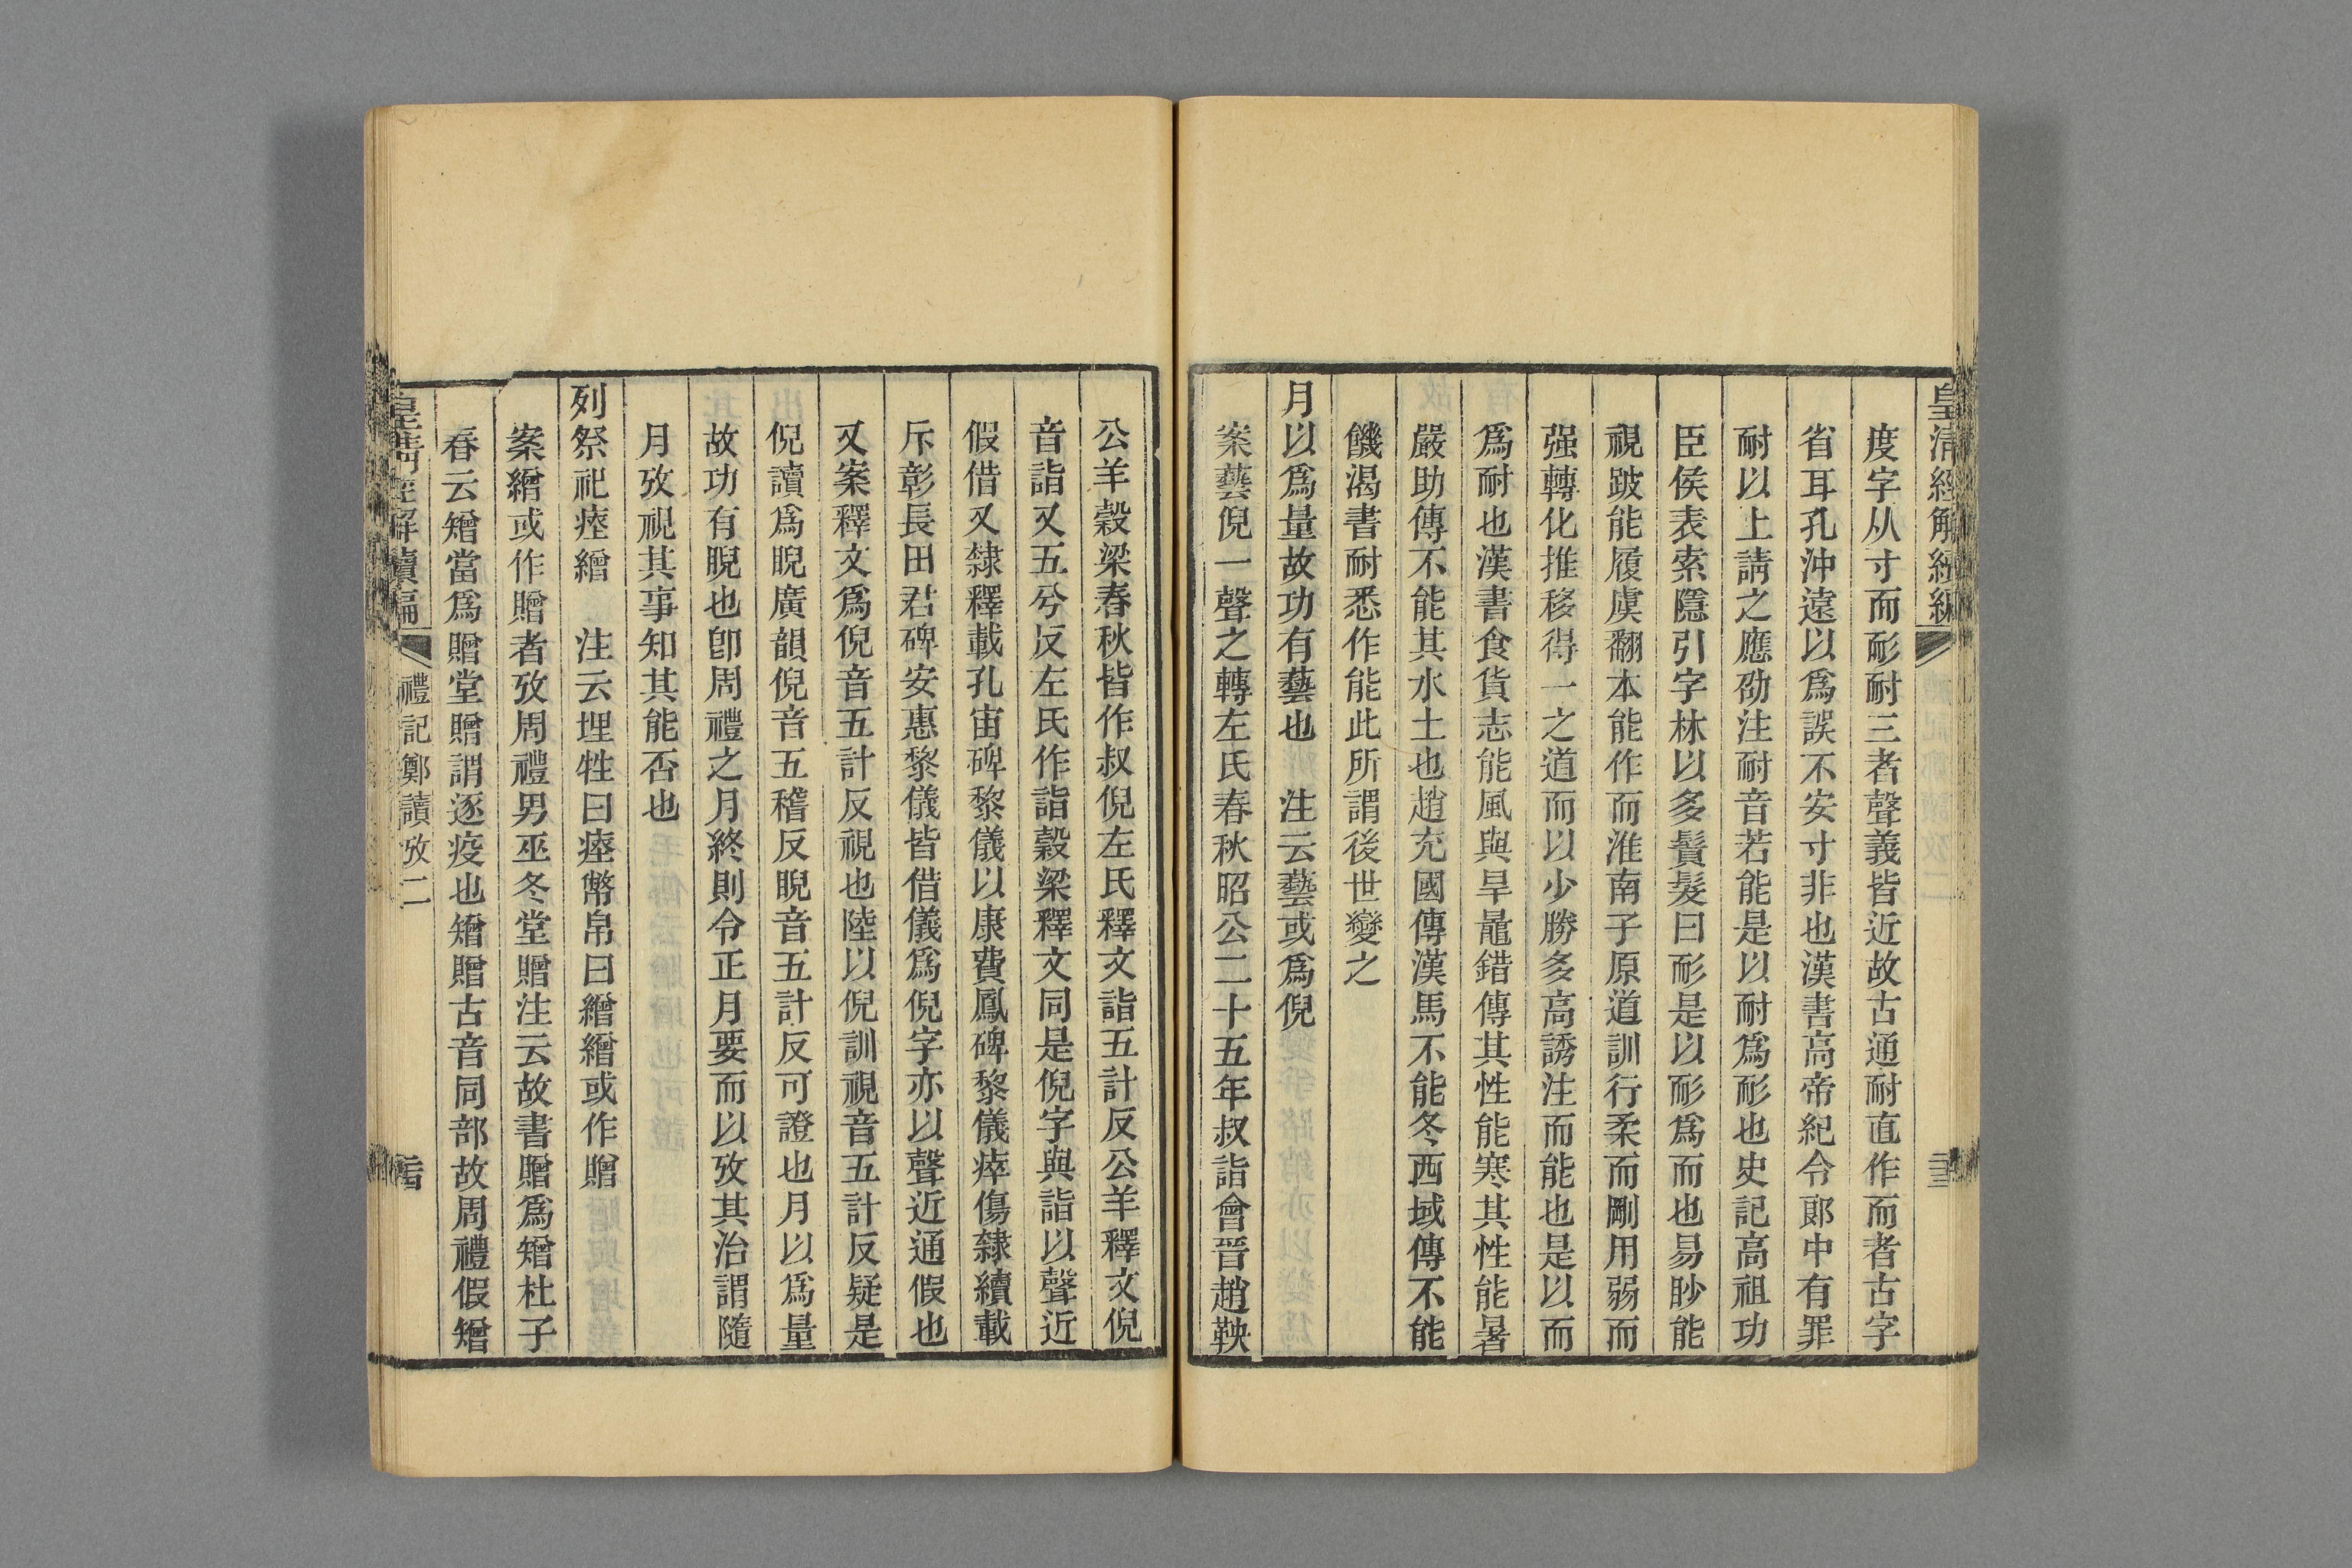 皇清經解續編
度字从寸而耏耐三者聲義皆近故古通耐直作而者古字
省耳孔沖遠以爲誤不安寸非也漢書高帝紀令郎中有罪
耐以上請之應劭注耐音若能是以耐爲耏也史記高祖功
臣侯表索隱引字林以多鬚髮曰耏是以耏爲而也易眇能
視跛能履虞翻本能作而淮南子原道訓行柔而剛用弱而
强轉化推移得一之道而以少勝多高誘注而能也是以而
爲耐也漢書食貨志能風與旱鼂錯傳其性能寒其性能暑
嚴助傳不能其水土也趙充國傳漢馬不能冬西域傳不能
饑渴書耐悉作能此所謂後世變之
月以爲量故功有藝也　注云藝或爲倪
案藝倪一聲之轉左氏春秋昭公二十五年叔詣會晉趙鞅
公羊穀梁春秋皆作叔倪左氏釋文詣五計反公羊釋文倪
音詣又五兮反左氏作詣穀梁釋文同是倪字與詣以聲近
假借又隸釋載孔宙碑黎儀以康費鳳碑黎儀瘁傷隸續載
斥彰長田君碑安惠黎儀皆借儀爲倪字亦以聲近通假也
又案釋文爲倪音五計反視也陸以倪訓視音五計反疑是
倪讀爲睨廣韻倪音五稽反睨音五計反可證也月以爲量
故功有睨也卽周禮之月終則令正月要而以攷其治謂隨
月攷視其事知其能否也
列祭祀瘞繒　注云埋牲曰瘞幣帛曰繒繒或作贈
案繒或作贈者攷周禮男巫冬堂贈注云故書贈爲矰杜子
春云矰當爲贈堂贈謂逐疫也矰贈古音同部故周禮假矰
皇清經解續編　禮記鄭讀攷二